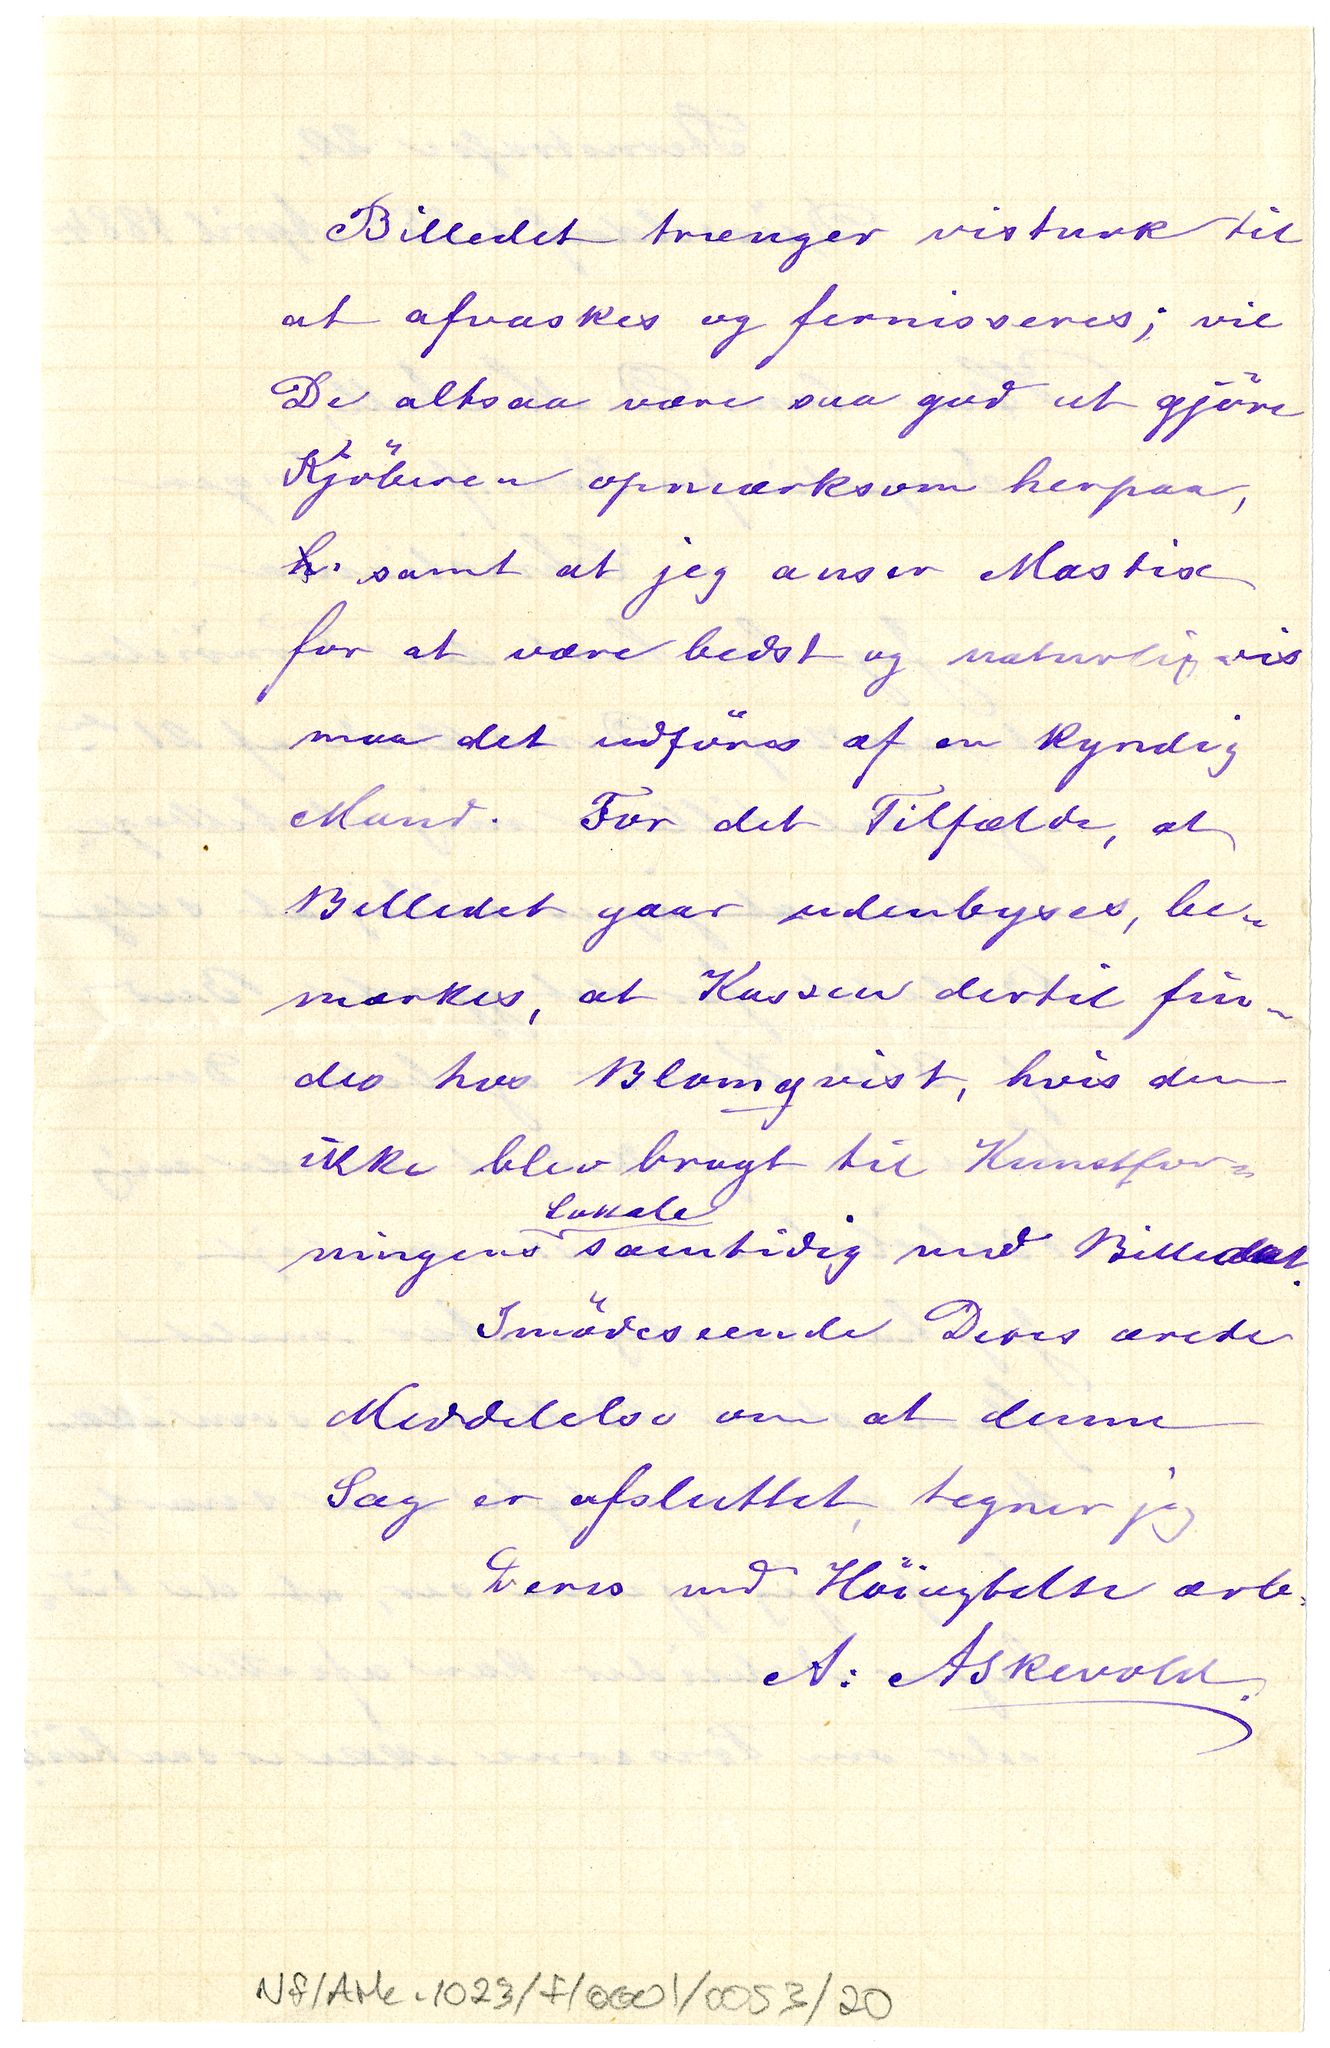 Billedet trænger vistnok til
at afvaskes og fernisseres; vil
De altsaa være saa god at gjöre
Kjöberen opmærksom herpaa,
h. samt at jeg anser Mastix
for at være bedst og naturligvis
maa det udföres af en kyndig
Mand. For det Tilfælde, at
Billedet gaar udenbyses, be-
mærkes, at Kassen dertil fin-
des hos Blomqvist, hvis den
ikke blev bragt til Kunstfor-
ningens Lokale samtidig med Billedet.
Imödeseende Deres ærede
Meddelelse om at denne
Sag er afsluttet, tegner jeg
Deres med Höiagtelse ærb.
A: Askevold.
NB/Ark.-1023/F/0001/0053/20